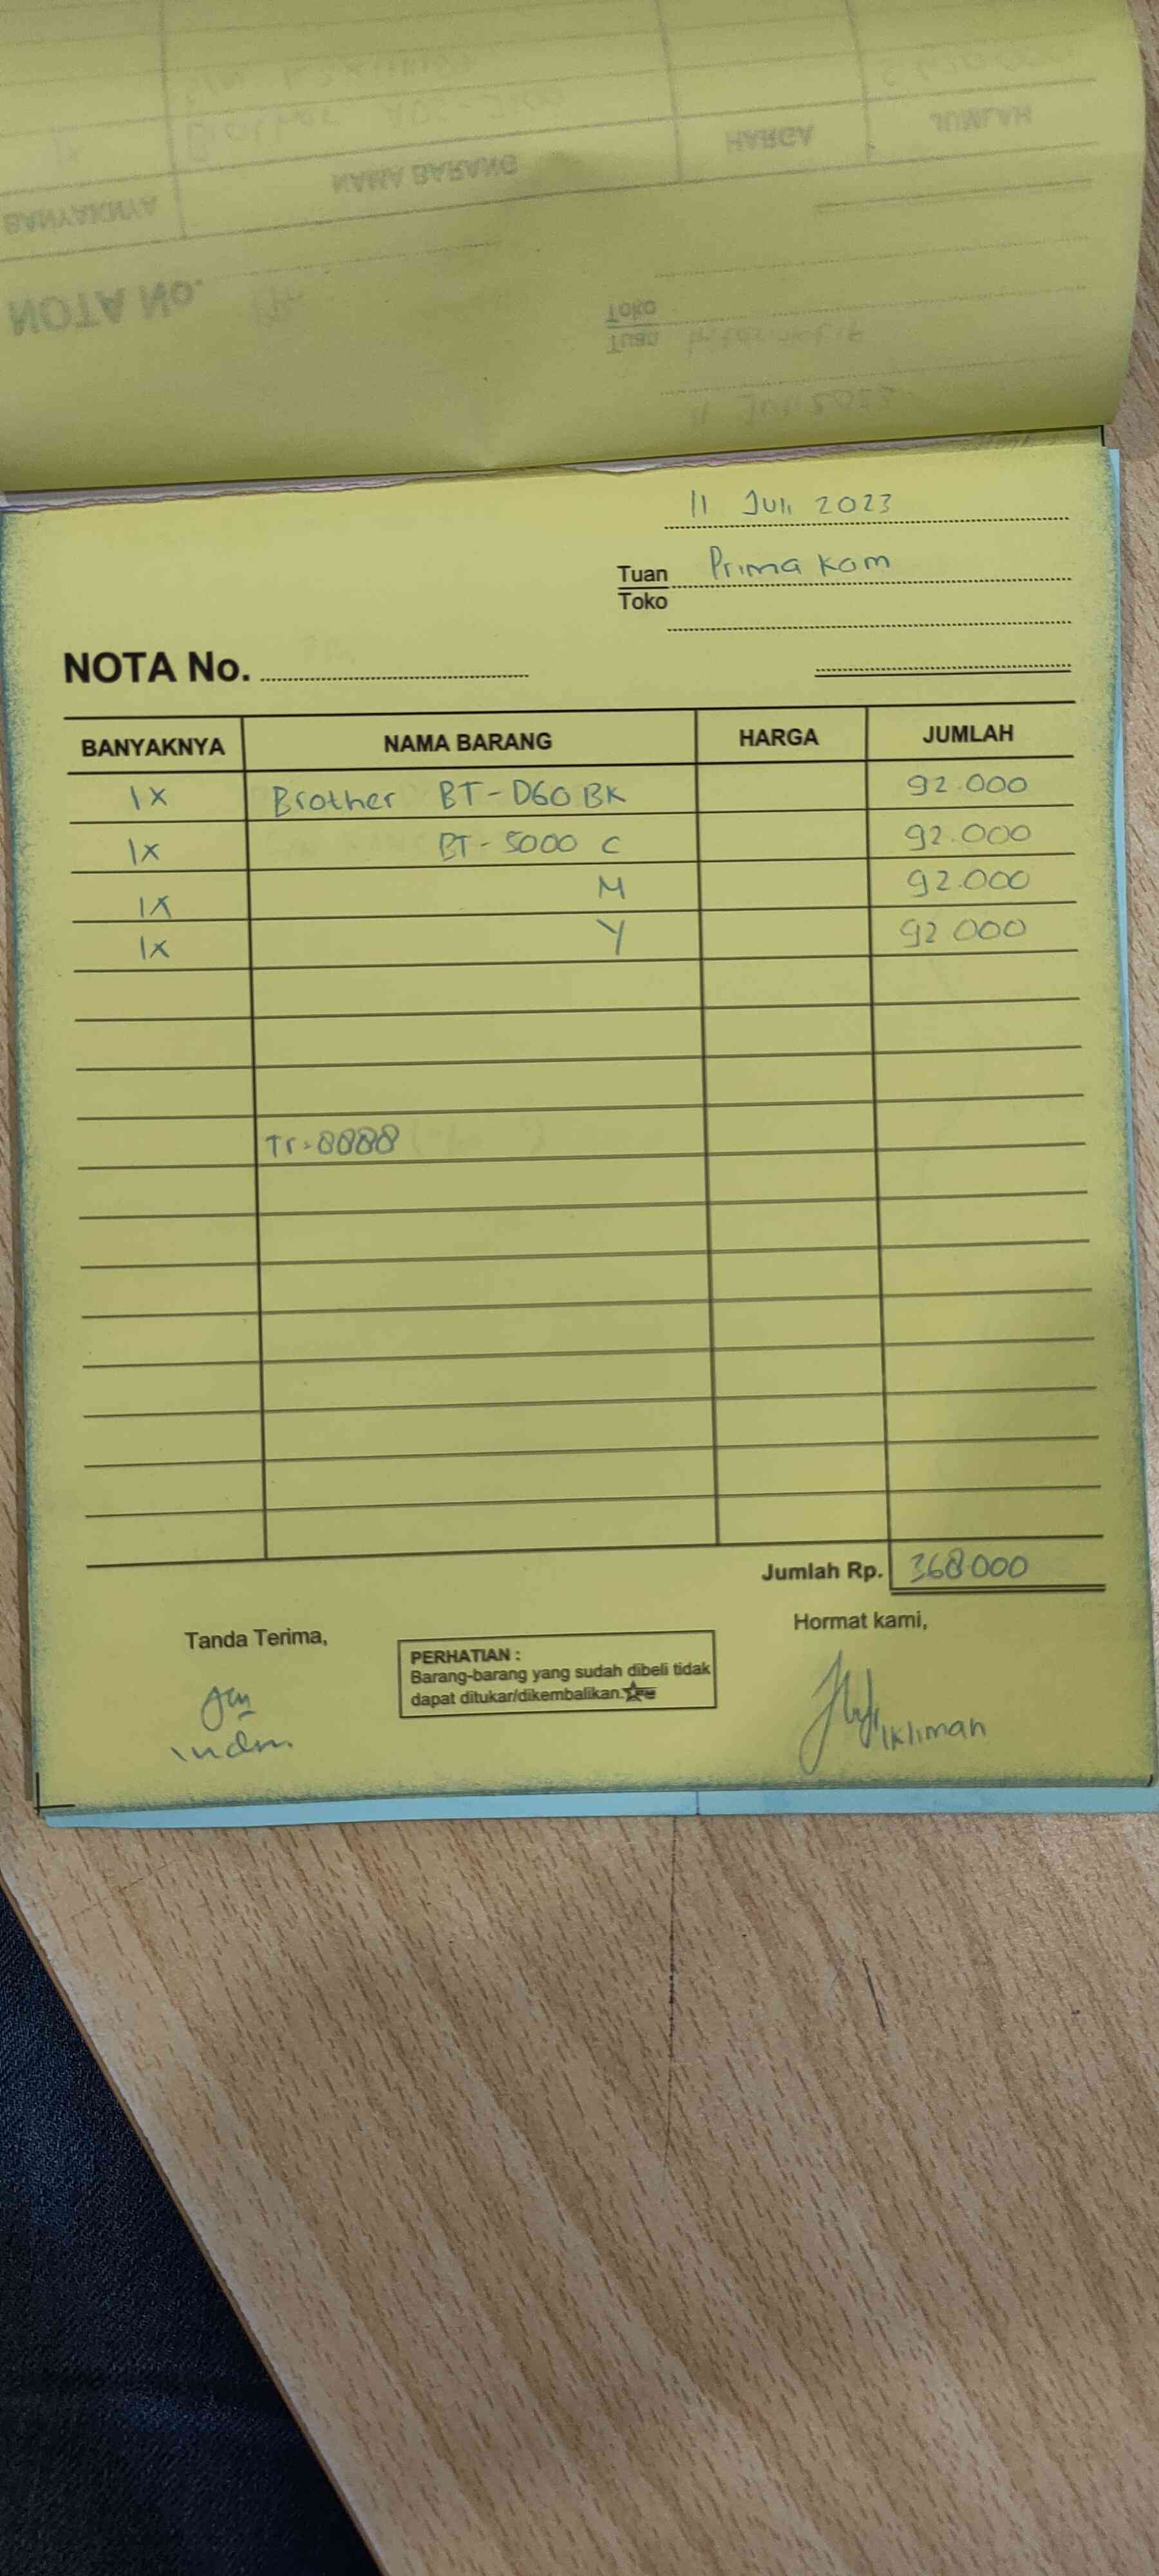 11 Juli 2023
Tuan Prima Kom
Toko
NOTA No.
BANYAKNYA NAMA BARANG HARGA JUMLAH
1x Brother BT-D60 BK 92.000
1x BT-5000 C 92.000
1x M 92.000
1x Y 92 000
Tr-8888
Jumlah Rp. 368000
Tanda Terima, Hormat kami,
PERHATIAN :
Barang-barang yang sudah dibeli tidak
dapat ditukar/dikembalikan.
Ikliman